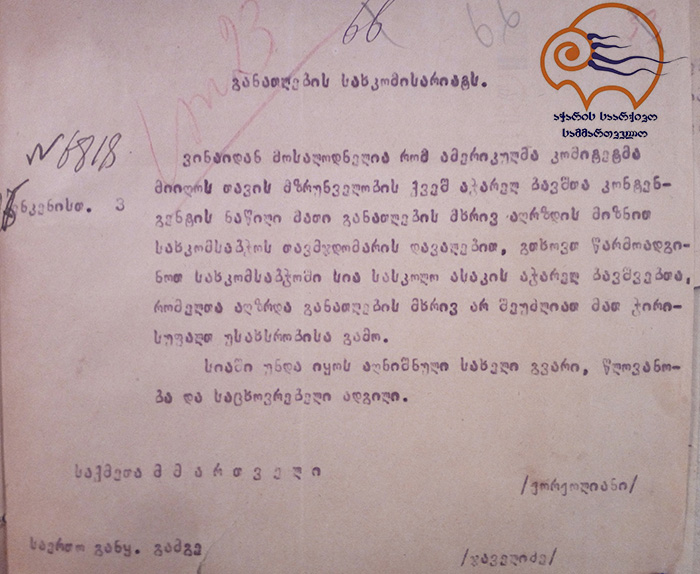 23.
66
66
აჭარის საარქივო
სამმართველო
განათლების სახკომისარიატს.
№ 6818
ენკენისთ. 3
ვინაიდან მოსალოდნელია რომ ამერიკულმა კომიტეტმა
მიიღოს თავის მზრუნველობის ქვეშ აჭარელ ბავშთა კონტენ-
გენტის ნაწილი მათი განათლების მხრივ აღრზდის მიზნით
სახკომსაბჭოს თავმჯდომარის დავალებით, გთხოვთ წარმოადგი-
ნოთ სახკომსაბჭოში სია სასკოლო ასაკის აჭარელ ბავშვებთა,
რომელთა აღზრდა განათლების მხრივ არ შეუძლიათ მათ ჭირი-
სუფალთ უსახსრობისა გამო.
სიაში უნდა იყოს აღნიშნული სახელი გვარი, წლოვანო-
ბა და საცხოვრებელი ადგილი.
საქმეთა მ მ ა რ თ ვ ე ლ ი
/ჟორჟოლიანი/
საერთო განყ. გამგე
/ჯაველიძე/